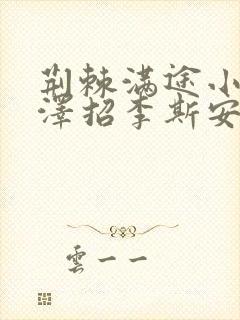 荆棘满途小
澤招李斯安
雲一一